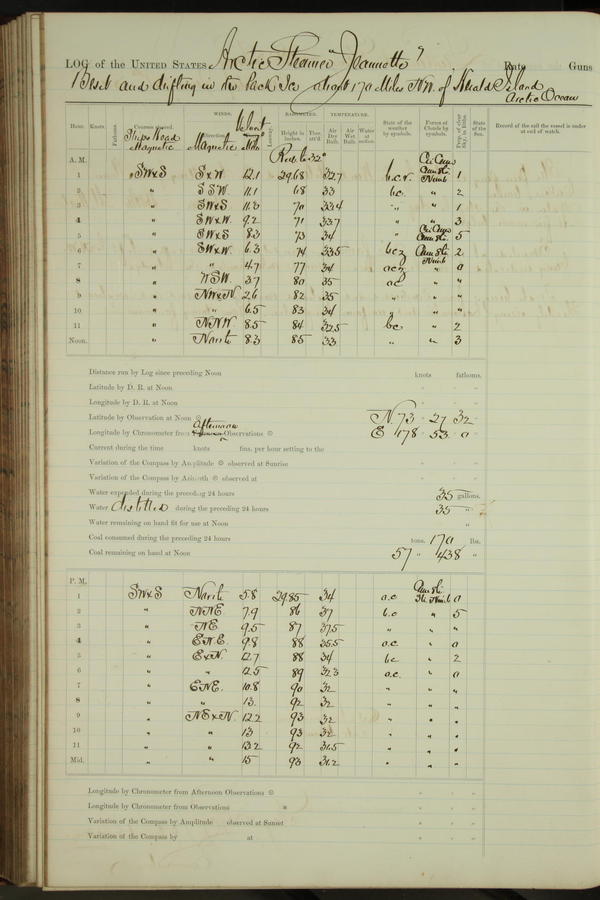 LOG of the UNITED STATES Arctic Steamer "Jeannette" Rate Guns
Beset and drifting in the Pack Ice about 170 Miles NW. of Herald Island
Arctic Ocean
Hour. Knots. Fathoms. Courses steered. WINDS. Leeway. BAROMETER. TEMPERATURE. State of the weather by symbols. Forms of Clouds by symbols. Prop. of clear Sky, in 10ths. State of the Sea. Record of the sail the vessel is under at end of watch.
Ships Head Magnetic Direction Magnetic Miles Height in inches. Ther. att'd Air Dry Bulb. Air Wet Bulb. Water at surface.
A. M. Red. to 32°
1 SW x S S x W 12.1 29.68 32.7 b.c.v. 1
2 " SSW. 11.1 68 33 bc. " 2
3 " SW x S 11.3 70 33.4 " " 1
4 " SW x W. 9.2 71 33.7 " " 3
5 " SW x S 8.3 73 34 " 5
6 " SW x W. 6.3 74 33.5 bcz 2
7 " " 4.7 77 34 acz 0
8 " WSW. 3.7 80 35 ac " "
9 " NW x N 2.6 82 35 " " "
10 " " 6.5 83 34 " " "
11 " NNW 8.5 84 32.5 bc " 2
Noon. " North 8.3 85 33 " " 3
Distance run by Log since preceding Noon knots fathoms.
Latitude by D. R. at Noon
Longitude by D. R. at Noon
Latitude by Observation at Noon N 73 - 27 32
Longitude by Chronometer from afternoon Observations E 178 - 53 - 0
Current during the time knots fms. per hour setting to the
Variation of the Compass by Amplitude observed at Sunrise
Variation of the Compass by Azimuth observed at
Water expended during the preceding 24 hours 35 gallons.
Water distilled during the preceding 24 hours 35 "
Water remaining on hand fit for use at Noon "
Coal consumed during the preceding 24 hours tons. 170 lbs.
Coal remaining on hand at Noon 57 " 438 "
P. M.
1 SW x S North 5.8 29.85 34 a.c 0
2 " NNE. 7.9 86 37 b.c " 5
3 " NE 9.5 87 37.5 " " "
4 " ENE. 9.8 88 35.5 a.c " 0
5 " E x N. 12.7 88 34 bc " 2
6 " " 12.5 89 32.3 a.c. " 0
7 " ENE. 10.8 90 32 " " "
8 " " 13. 92 32 " " "
9 " NE x N. 12.2 93 32 " " "
10 " " 13 93 32 " " "
11 " " 13.2 92 31.5 " " "
Mid. " " 15 93 31.2 " " "
Longitude by Chronometer from Afternoon Observations
Longitude by Chronometer from Observations
Variation of the Compass by Amplitude observed at Sunset
Variation of the Compass by at